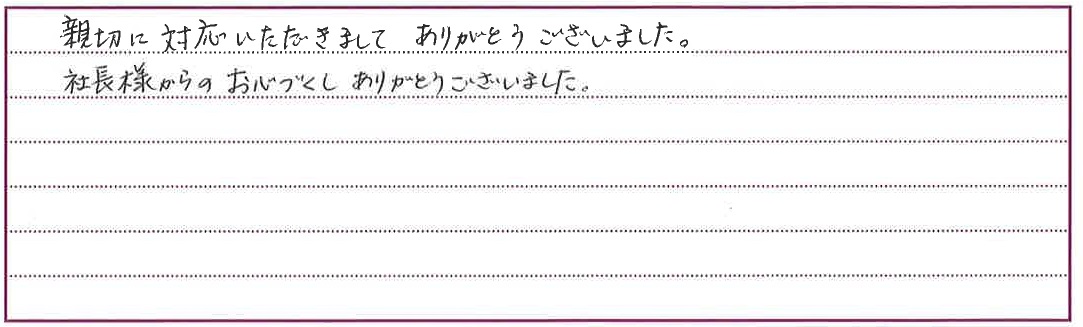 親切に対応いただきまして ありがとうございました。
社長様からのお心づくしありがとうございました。